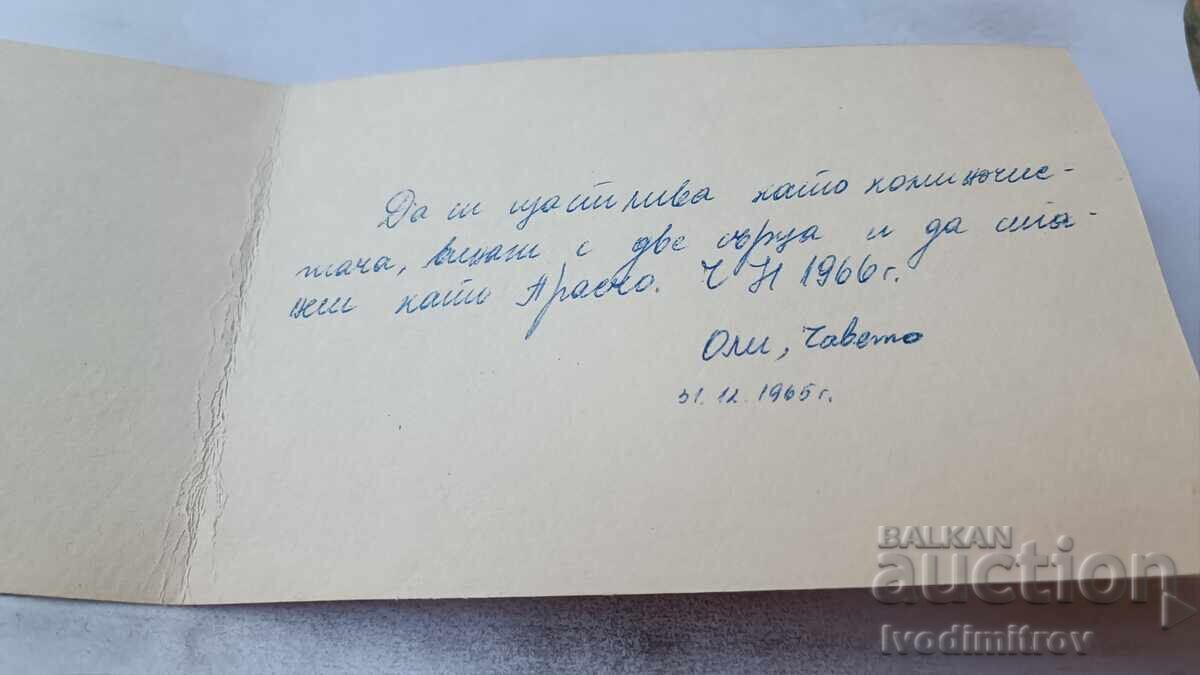 Да си щастлива като коминочис-
тача, винаги с две сърца и да ста-
неш като Праско. Ч Н 1966 г.
Оли, Чавето
31.12.1965 г.
BALKAN
auction
Ivodimitrov